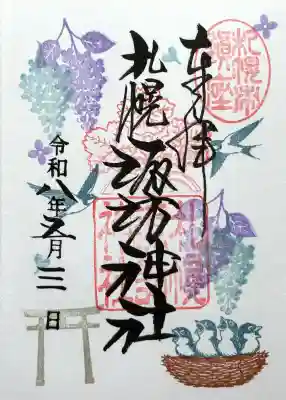 奉拝
札幌市鎮座
札幌諏訪神社
令和八年五月三日